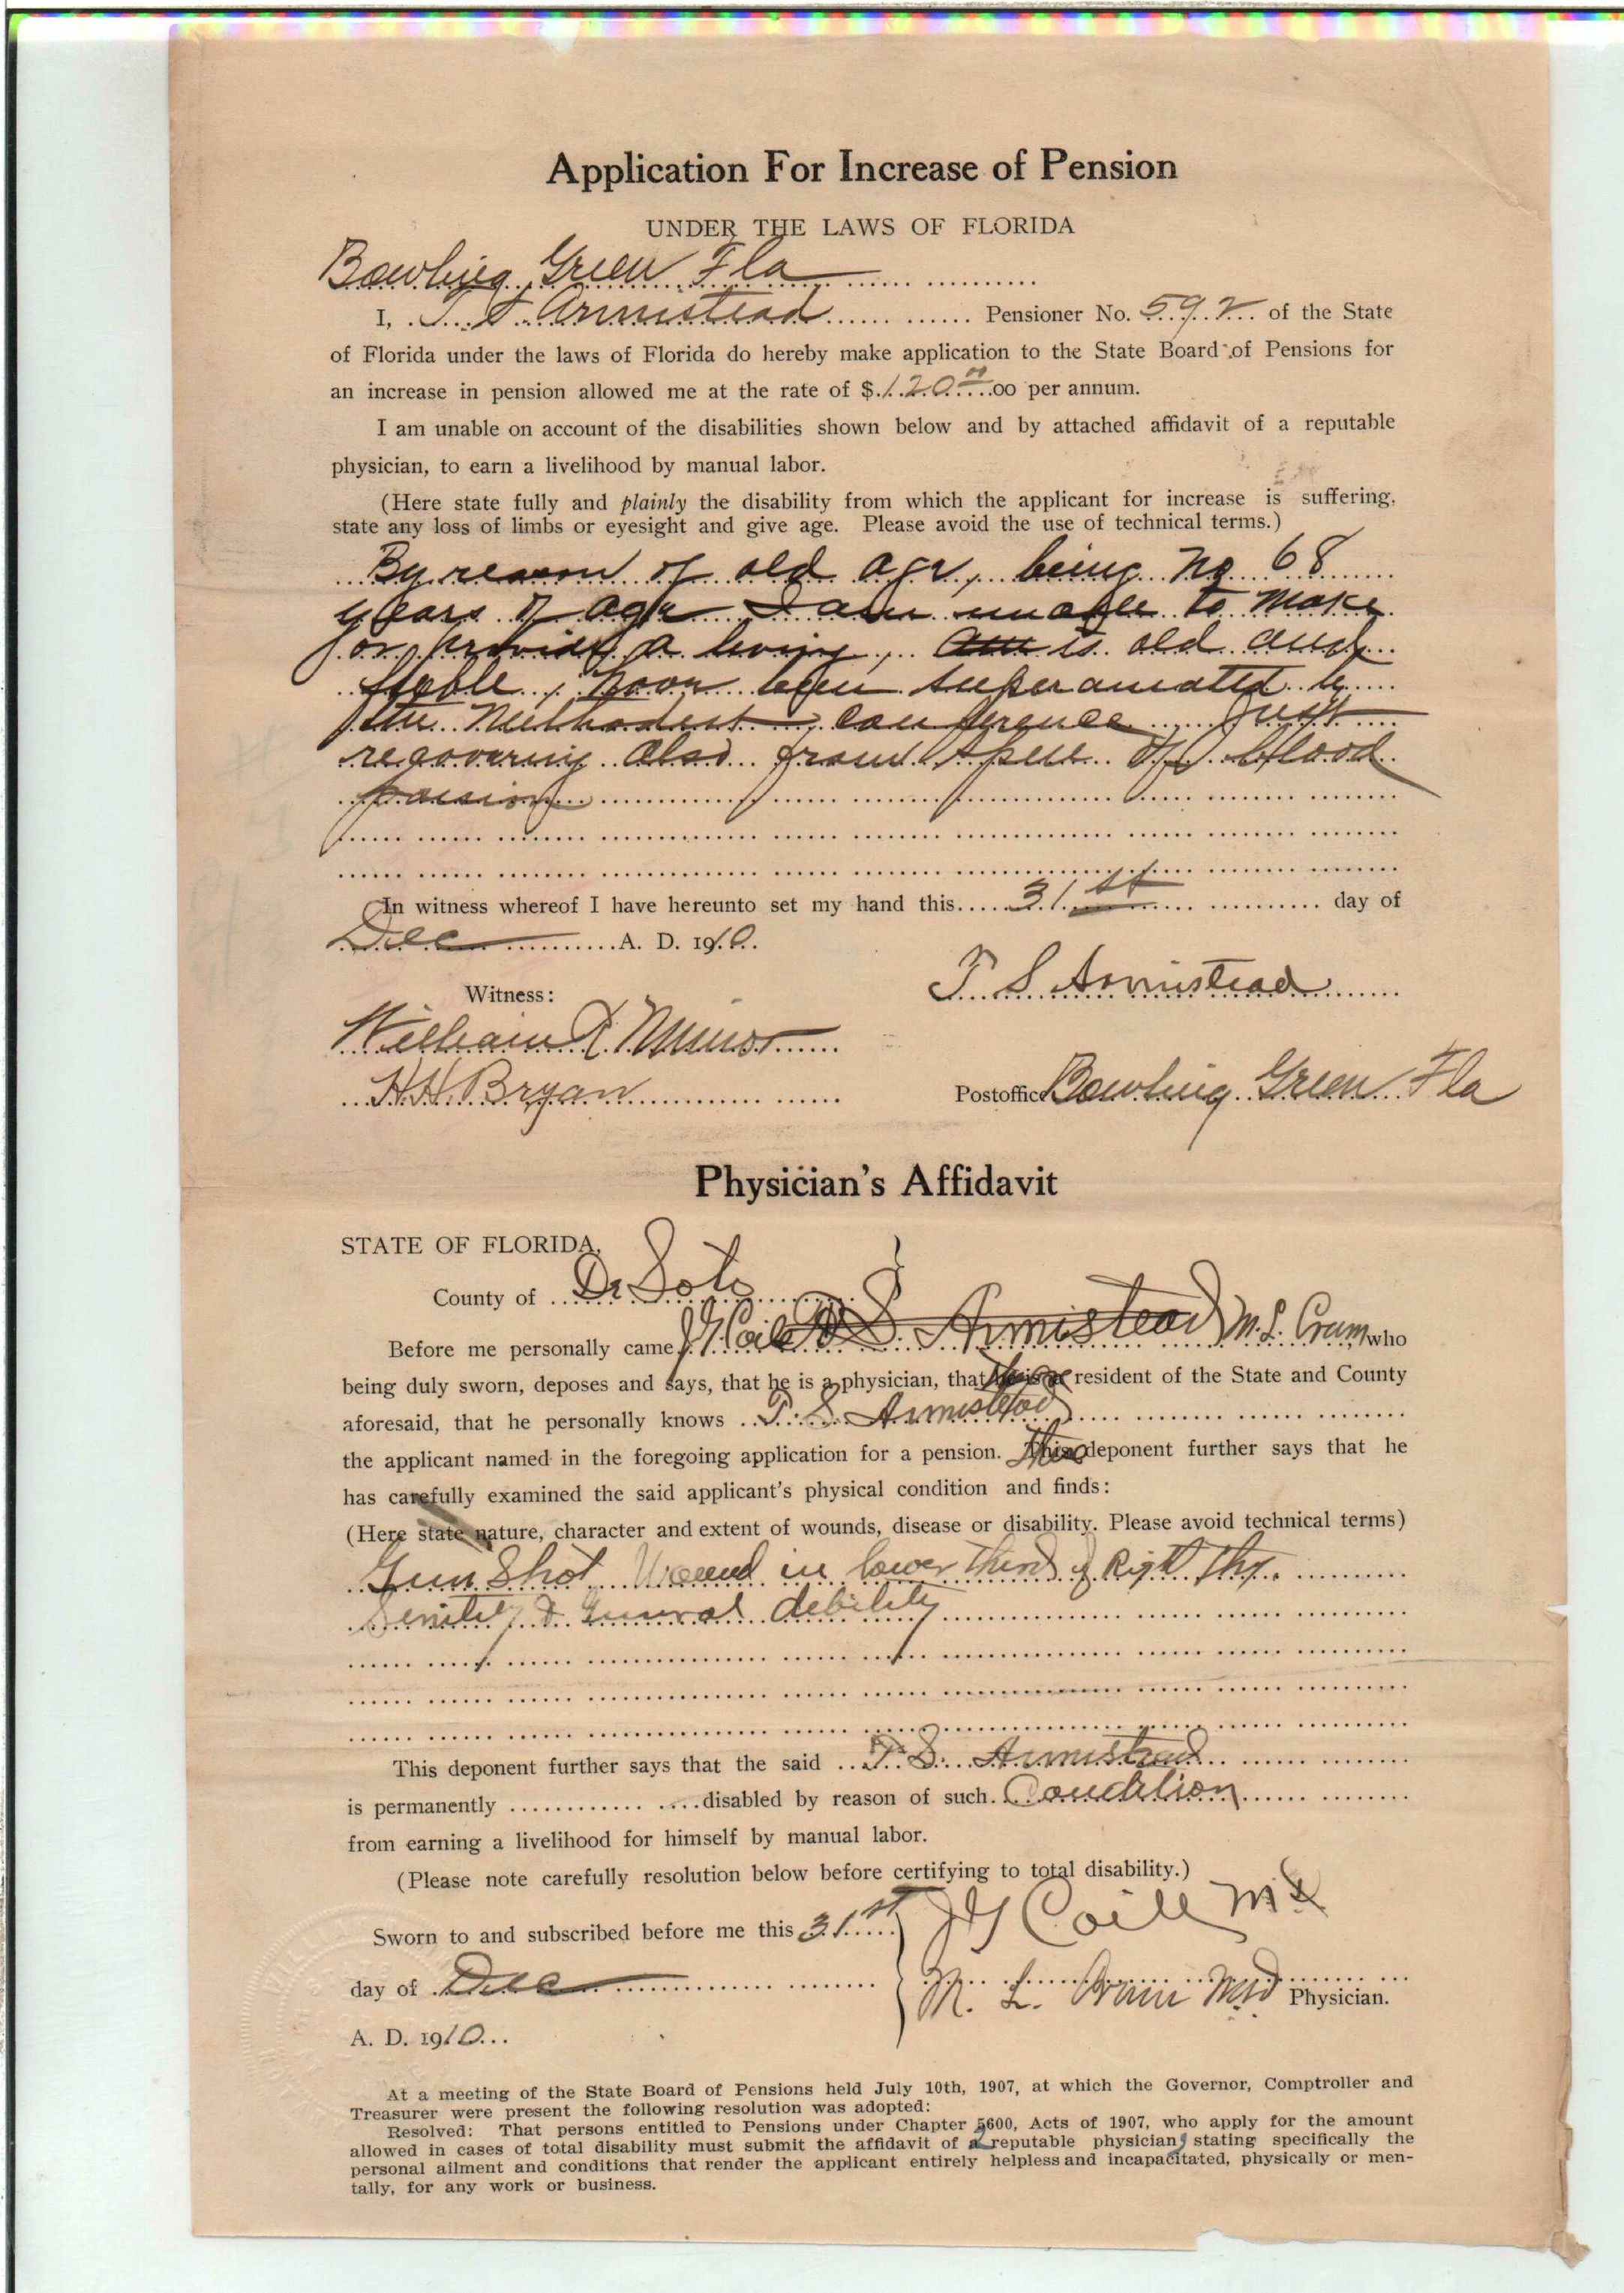 Application For Increase of Pension
UNDER THE LAWS OF FLORIDA
Bowling Green Fla
I, T S Armistead Pensioner No. 592 of the State
of Florida under the laws of Florida do hereby make application to the State Board of Pensions for
an increase in pension allowed me at the rate of $120 00 per annum.
I am unable on account of the disabilities shown below and by attached affidavit of a reputable
physician, to earn a livelihood by manual labor.
(Here state fully and plainly the disability from which the applicant for increase is suffering,
state any loss of limbs or eyesight and give age. Please avoid the use of technical terms.)
By reason of old age, being 68
years of age I am unable to make
or provide a living, is old and
feeble, been superanuated by
the Methodist Conference, Just
recovering also from spell of blood
poison
In witness whereof I have hereunto set my hand this 31st day of
Dec A. D. 1910.
T. S. Armistead
Witness:
William R Minor
H.H. Bryan
Postoffice Bowling Green Fla
Physician's Affidavit
STATE OF FLORIDA,
County of De Soto
Before me personally came J G Coile T S. Armistead M. L. Crum, who
being duly sworn, deposes and says, that he is a physician, that resident of the State and County
aforesaid, that he personally knows T. S. Armistead
the applicant named in the foregoing application for a pension. This deponent further says that he
has carefully examined the said applicant's physical condition and finds:
(Here state nature, character and extent of wounds, disease or disability. Please avoid technical terms)
Gun Shot Wound in lower third of Right Thy.
Senility & General debility
This deponent further says that the said T. S. Armistead
is permanently disabled by reason of such Condition
from earning a livelihood for himself by manual labor.
(Please note carefully resolution below before certifying to total disability.)
Sworn to and subscribed before me this 31st
day of Dec
A. D. 1910
J G Coile MD
M. L. Crum MD Physician.
At a meeting of the State Board of Pensions held July 10th, 1907, at which the Governor, Comptroller and
Treasurer were present the following resolution was adopted:
Resolved: That persons entitled to Pensions under Chapter 5600, Acts of 1907, who apply for the amount
allowed in cases of total disability must submit the affidavit of 2 reputable physicians stating specifically the
personal ailment and conditions that render the applicant entirely helpless and incapacitated, physically or men-
tally, for any work or business.